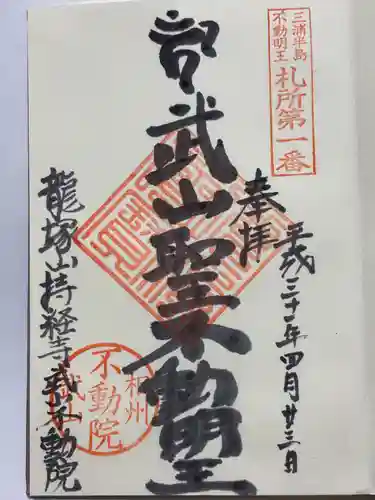 三浦半島
不動明王
札所第一番
奉拝
平成三十年四月廿三日
武山聖不動明王
龍塚山持経寺武山不動院
相州
不動院
武山